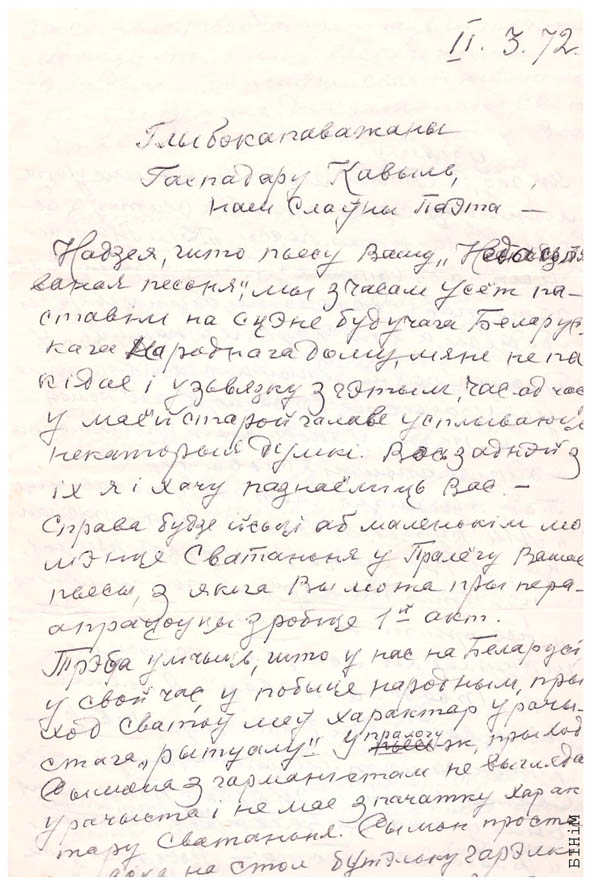 II. 3. 72.
Глыбокапаважаны
Гаспадару Кавыль,
наш Слаўны Паэта —
Надзея, што пьесу Вашу „Недасьпя
ваная песьня", мы з часам усёж па-
ставім на сцэне будучага Беларус-
кага Народнага дому, мяне не па
кідае і у зьвязку з гэтым, час ад час
у маёй старой галаве усплываюць
некаторыя думкі. Вось з адной з
іх я і хачу пазнаёміць Вас. —
Справа будзе ісьці аб маленькім мо-
мэнце Сватаньня у Пралёгу Вашае
пьесы, з якога Вы можа пры пера-
апрацоўцы зробіце 1ы акт.
Трэба улічыць, што у нас на Беларусі,
у свой час, у побыце народным, пры
ход сватоў меў характар урачы-
стага „рытуалу" У пралогу ж, прыход
Сымона з гарманістам не выгляда
урачыста і не мае з пачатку харак
тару Сватаньня. Сымон проста
на стол бутэльку гарэлк
БІНіМ